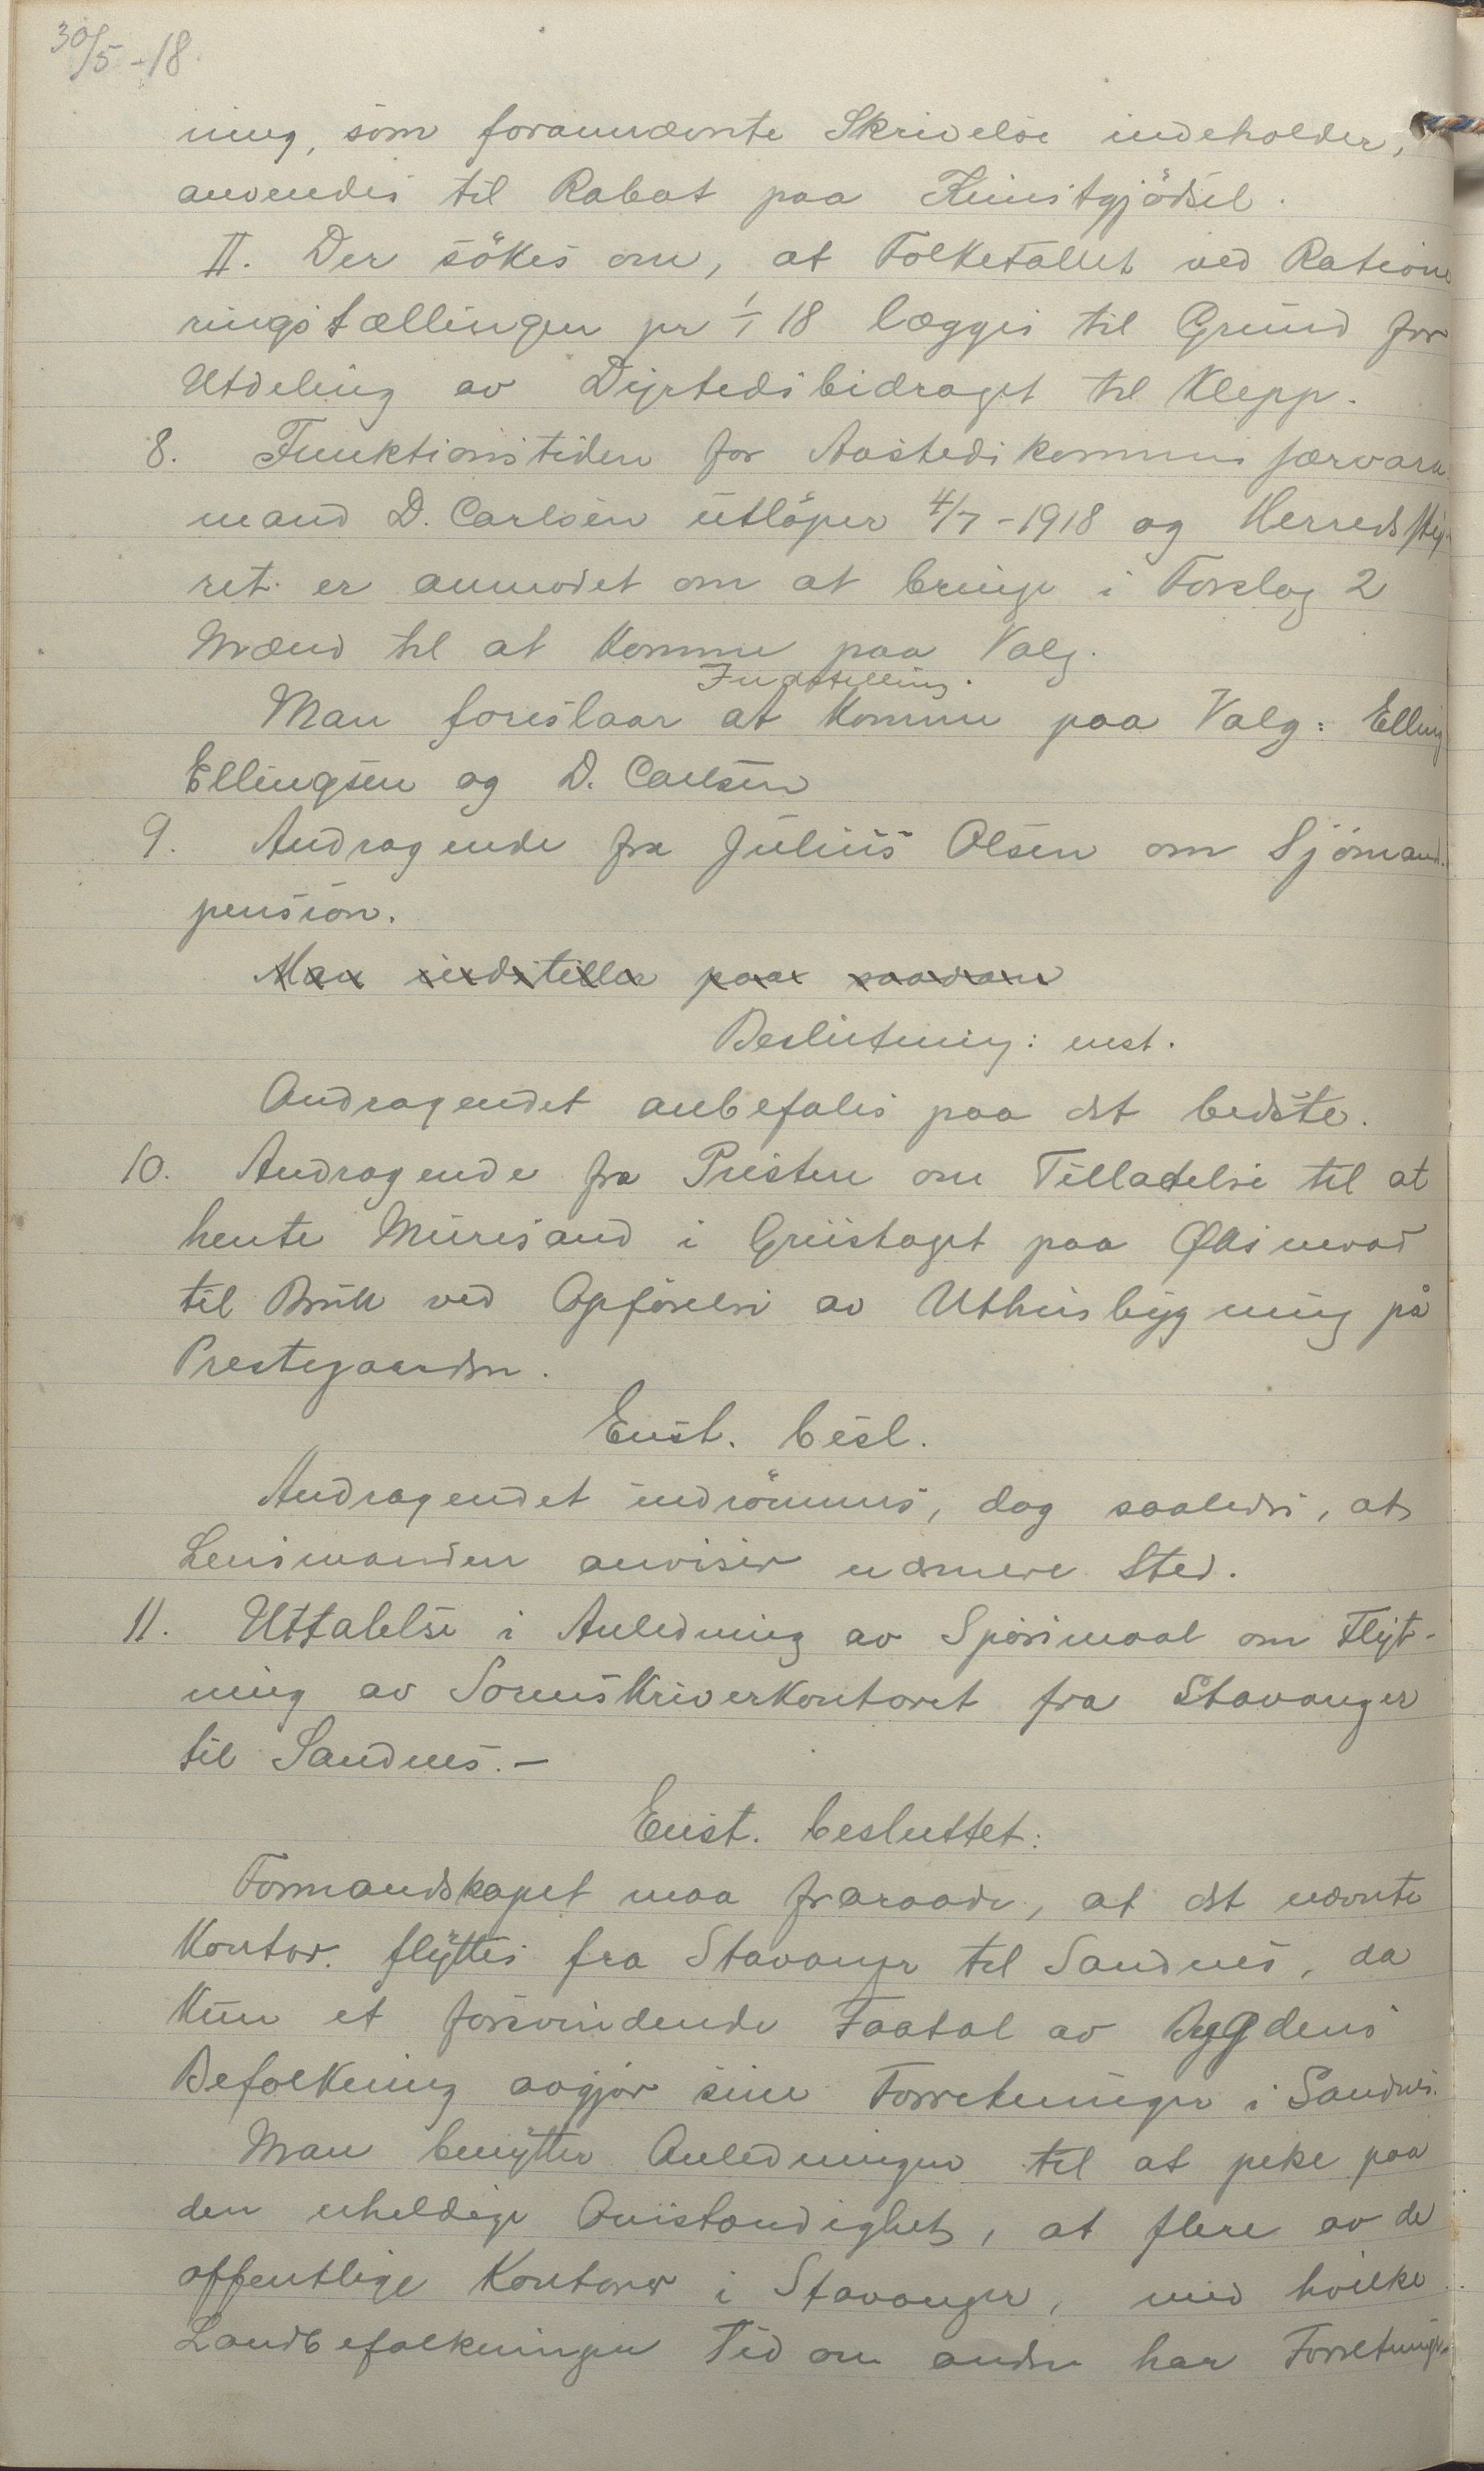 30/5-18.
ning, som forannævnte Skrivelse indeholder,
anvendes til Rabat paa Kunstgjødsel.
II. Der sökes om, at Folketallet ved Ratione
ringstællingen pr 1/1 18 lægges til Grund for
Utdeling av Dyrtidsbidraget til Klepp.
8. Funktionstiden for Aastedskommis
mand D. Carlsen utlöper 4/7-1918 og Herredssty-
ret er anmodet om at bringe i Forslag 2
Mænd til at komme paa Valg.
Indstilling.
Man foreslaar at komme paa Valg: Elling
Ellingsen og D. Carlsen
9. Andragende fra Julius Olsen om Sjömand
pension.
Man indstiller paa saadan
Beslutning: enst.
Andragendet anbefales paa det bedste.
10. Andragende fra Presten om Tilladelse til at
hente Muresand i Grustaget paa Øksnevad
til Bruk ved Opförelse av Uthusbygning på
Prestegaarden.
Enst. besl.
Andragendet indrömmes, dog saaledes, at
Lensmanden anviser nærmere Sted.
11. Uttalelse i Anledning av Spörsmaal om Flyt-
ning av Sorenskriverkontoret fra Stavanger
til Sandnes.-
Enst. besluttet:
Formandskapet maa fraraade, at det nævnte
Kontor flyttes fra Stavanger til Sandnes, da
kun et forsvindende Faatal av Bygdens
Befolkning avgjör sine Forretninger i Sandnes.
Man benytter Anledningen til at peke paa
den uheldige Omstændighet, at flere av de
offentlige Kontorer i Stavanger, med hvilke
Landbefolkningen Tid om anden har Forretnings-